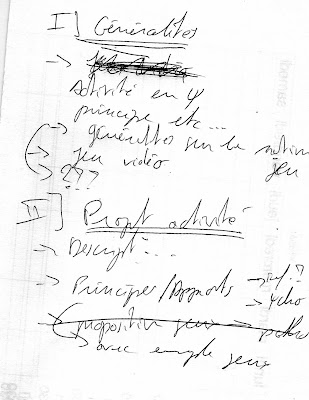 I] Généralités
→
Activité en Ψ
principe etc...
généralités sur le
jeu vidéo jeu
→ ???
II] Projet activité
→ Descript°...
→ Principes/Apports →
→ Ψcho
proposition jeux → patho
→ avec exemple jeux